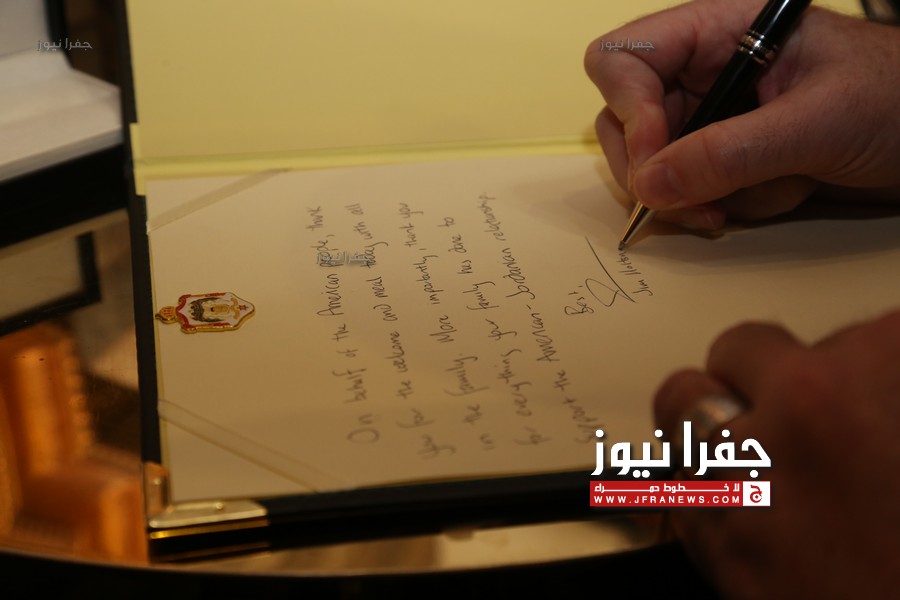 جفرا نيوز
جفرا نيوز
On behalf of the American people, thank
you for the welcome and meal today with all
in the family. More importantly, thank you
for everything your family has done to
support the American-Jordanian relationship.
Best,
جفرا نيوز
جفرا نيوز
لا خطوط حمراء
WWW.JFRANEWS.COM